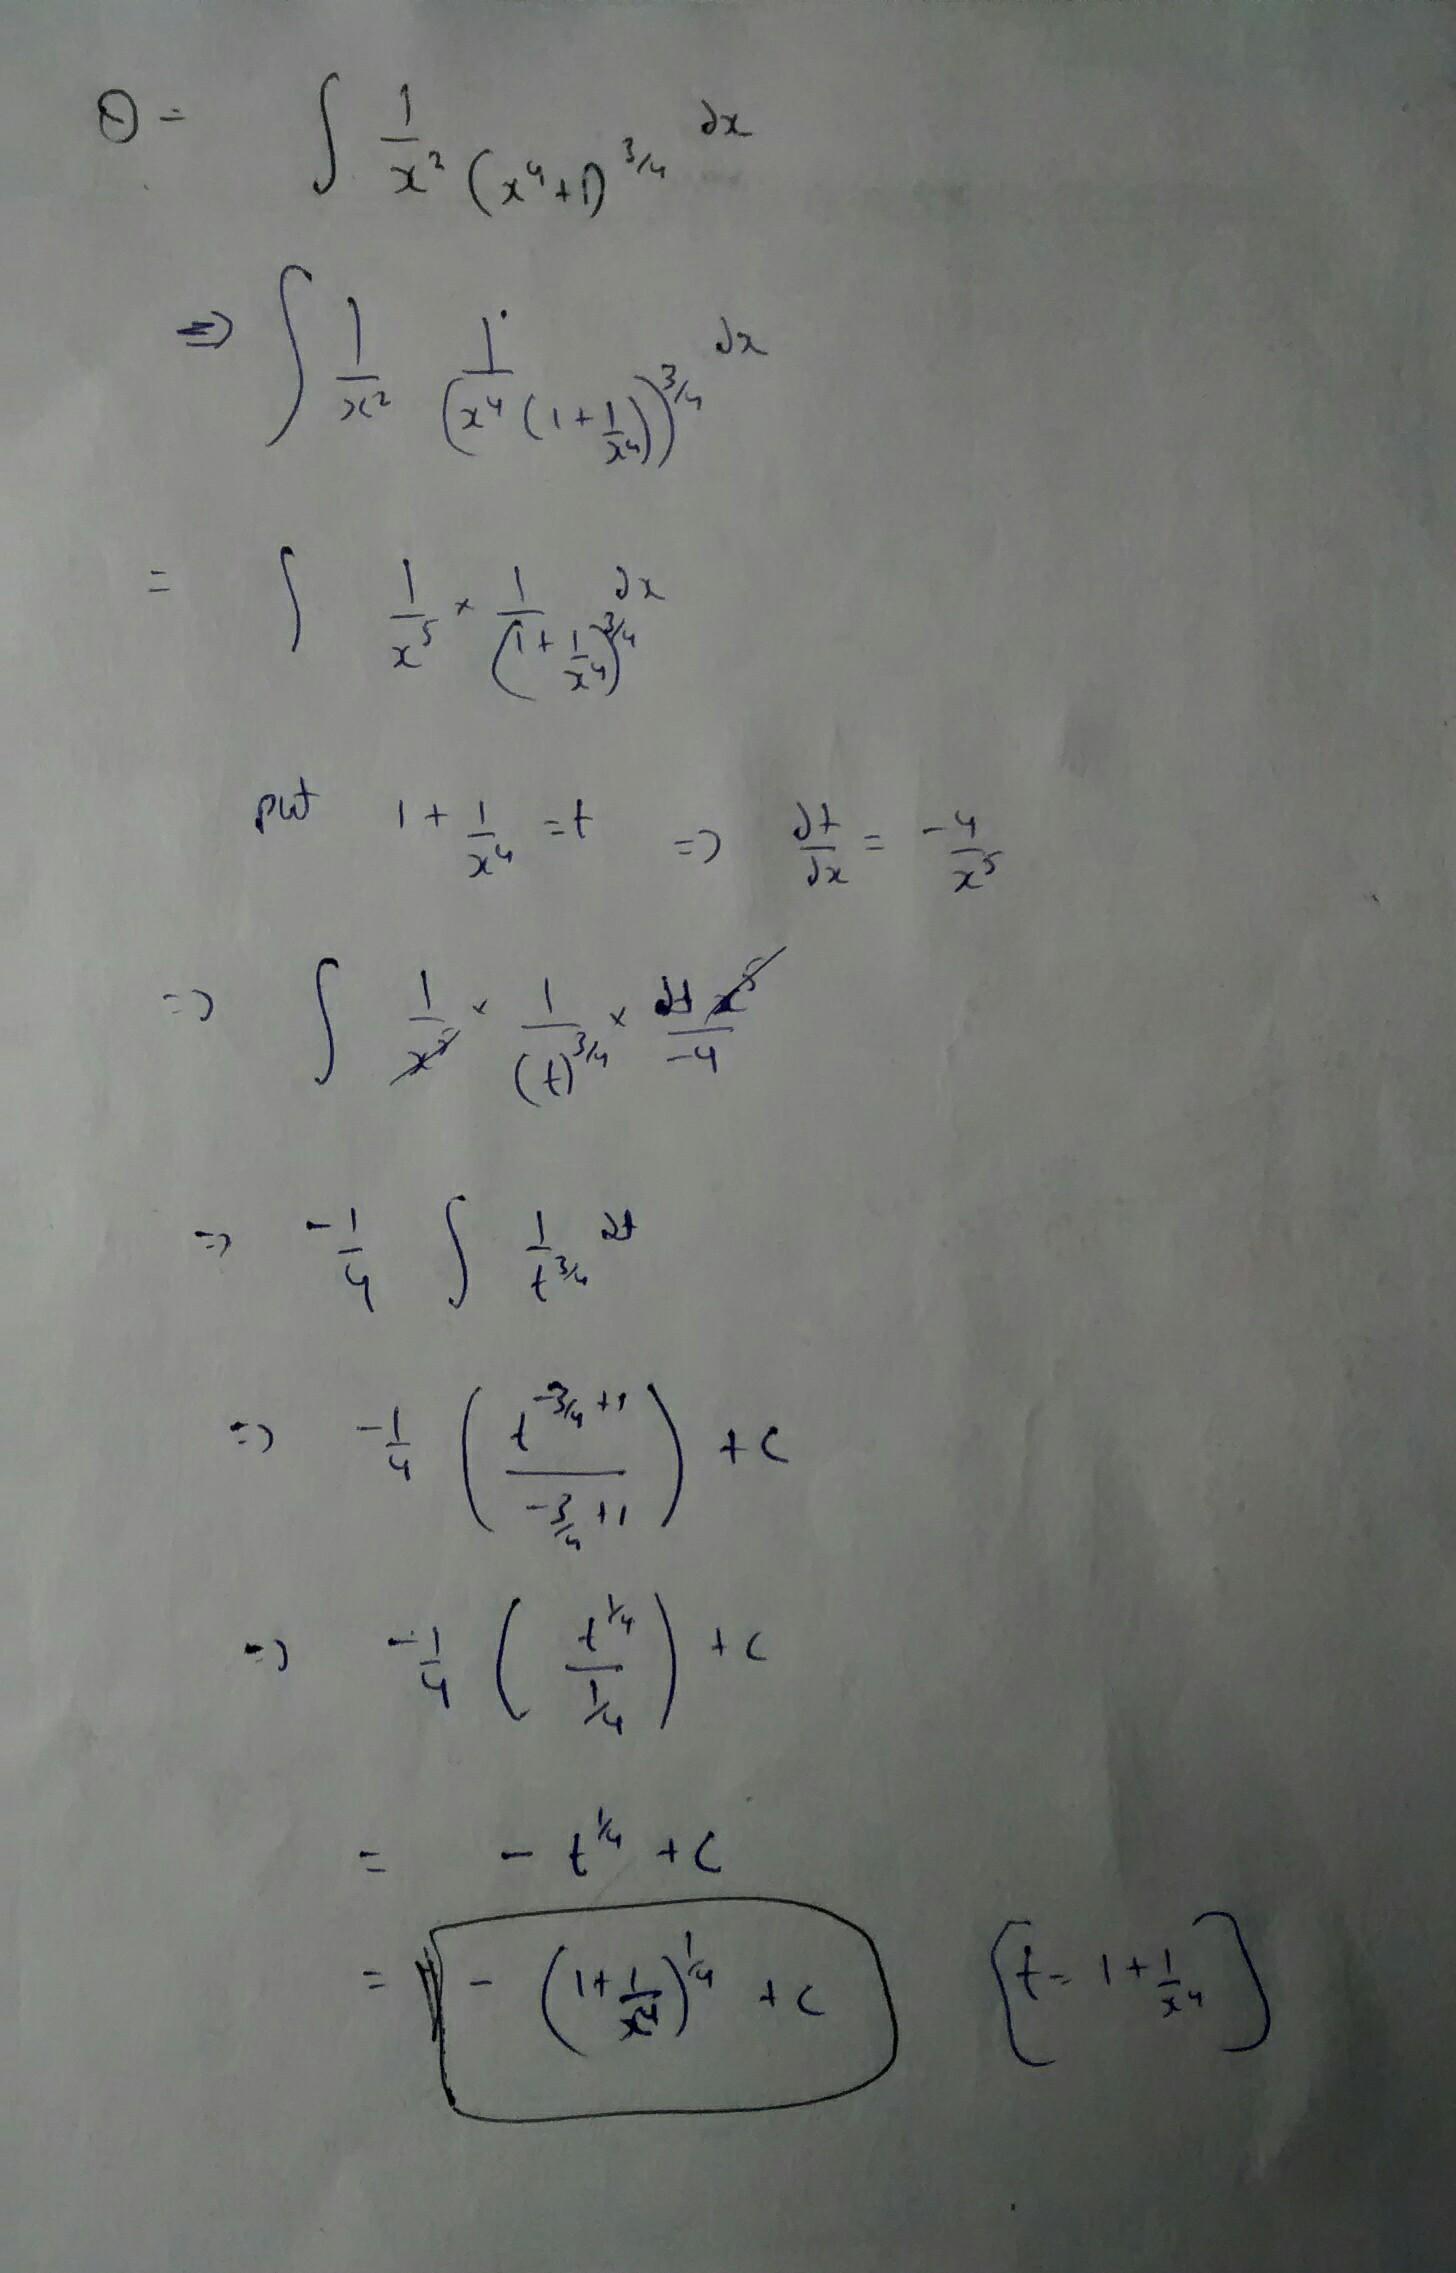 Q = ∫ 1/x² (x⁴+1)^3/4 dx
⇒ ∫ 1/x² 1/(x⁴(1+1/x⁴))^3/4 dx
= ∫ 1/x⁵ × 1/(1+1/x⁴)^3/4 dx
put 1+1/x⁴ = t ⇒ dt/dx = -4/x⁵
⇒ ∫ 1/x⁵ × 1/(t)^3/4 × dt x⁵/-4
⇒ -1/4 ∫ 1/t^3/4 dt
⇒ -1/4 (t^-3/4+1/-3/4+1) + c
⇒ -1/4 (t^1/4/1/4) + c
= - t^1/4 + c
= - (1+1/x⁴)^1/4 + c [t = 1+1/x⁴]